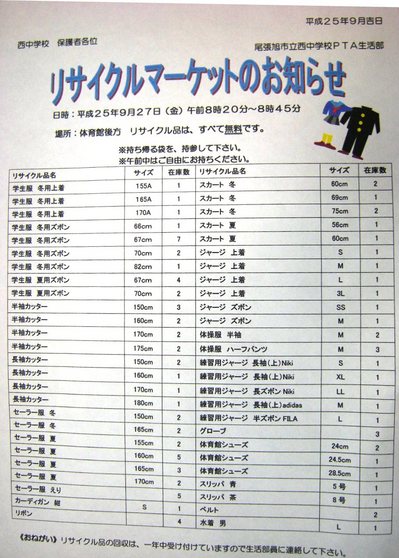 平成25年9月吉日
西中学校 保護者各位
尾張旭市立西中学校PTA生活部
リサイクルマーケットのお知らせ
日時:平成25年9月27日(金)午前8時20分~8時45分
場所:体育館後方 リサイクル品は、すべて無料です。
※持ち帰る袋を、持参して下さい。
※午前中はご自由にお持ちください。
リサイクル品名 サイズ 在庫数 リサイクル品名 サイズ 在庫数
学生服 冬用上着 155A 1 スカート 冬 60cm 2
学生服 冬用上着 165A 1 スカート 冬 69cm 1
学生服 冬用上着 170A 1 スカート 冬 75cm 2
学生服 冬用ズボン 66cm 1 スカート 夏 56cm 1
学生服 冬用ズボン 67cm 7 スカート 夏 60cm 1
学生服 冬用ズボン 70cm 2 ジャージ 上着 S 1
学生服 冬用ズボン 82cm 1 ジャージ 上着 M 1
学生服 夏用ズボン 67cm 4 ジャージ 上着 L 1
学生服 夏用ズボン 70cm 2 ジャージ 上着 3L 1
半袖カッター 150cm 3 ジャージ ズボン SS 1
半袖カッター 160cm 2 ジャージ ズボン M 1
半袖カッター 170cm 2 体操服 半袖 M 2
半袖カッター 175cm 2 体操服 ハーフパンツ M 3
長袖カッター 150cm 2 練習用ジャージ 長袖(上)Niki S 1
長袖カッター 160cm 1 練習用ジャージ 長袖(上)Niki XL 1
長袖カッター 170cm 1 練習用ジャージ 長ズボン Niki LL 1
長袖カッター 180cm 1 練習用ジャージ 長袖(上)adidas M 1
セーラー服 冬 150cm 2 練習用ジャージ 半ズボン FILA L 1
セーラー服 冬 165cm 2 グローブ 3
セーラー服 夏 155cm 2 体育館シューズ 24cm 2
セーラー服 夏 160cm 5 体育館シューズ 24.5cm 1
セーラー服 夏 165cm 3 体育館シューズ 28.5cm 1
セーラー服 夏 170cm 2 スリッパ 青 5号 1
セーラー服 えり 5 スリッパ 茶 8号 1
カーディガン 紺 S 1 ベルト 1
リボン 4 水着 男 L 1
《おねがい》リサイクル品の回収は、一年中受け付けていますので生活部員に連絡して下さい。